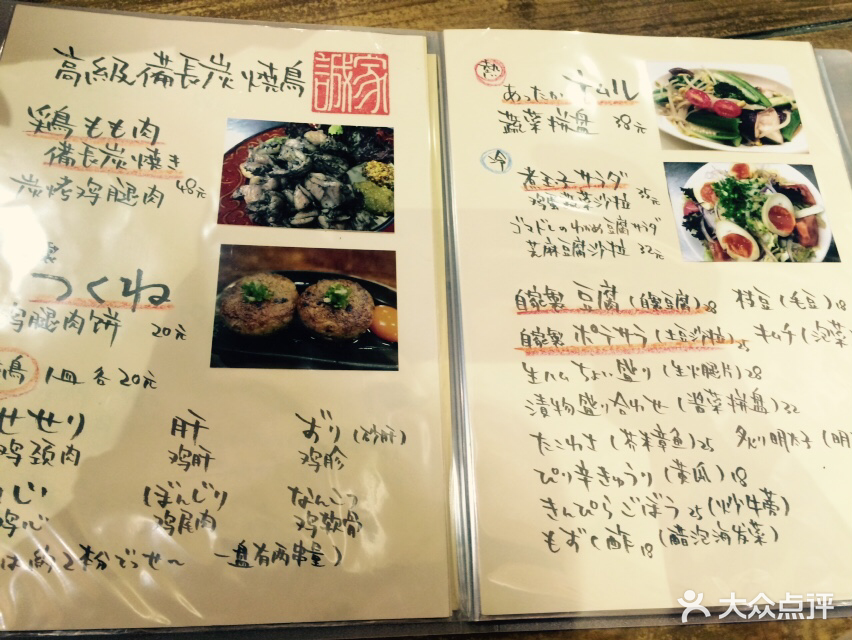 高級備長炭焼鳥
誠家
鶏もも肉
備長炭焼き
炭烤鸡腿肉 48元
つくね
鸡腿肉饼 20元
鶏 1皿各20元
せせり 肝 ずり(砂肝)
鸡颈肉 鸡肝 鸡胗
ぼんじり なんこつ
鸡心 鸡尾肉 鸡软骨
一盘有两串量)
熱
あったか ナムル
蔬菜拼盘 38元
冷
サラダ
鸡蛋蔬菜沙拉 35元
わかめ豆腐サラダ
芝麻豆腐沙拉 32元
自家製 豆腐(自製豆腐)28 枝豆(毛豆)18
自家製 ポテサラ(土豆沙拉)25 キムチ(泡菜
生ハムちょい盛り(生火腿片)28
漬物盛り合わせ(酱菜拼盘)22
たこわさ(芥末章鱼)25 炙り明太子(明
ぴり辛きゅうり(黄瓜)18
きんぴらごぼう25(炒牛蒡)
もずく酢18(醋泡海发菜)
大众点评